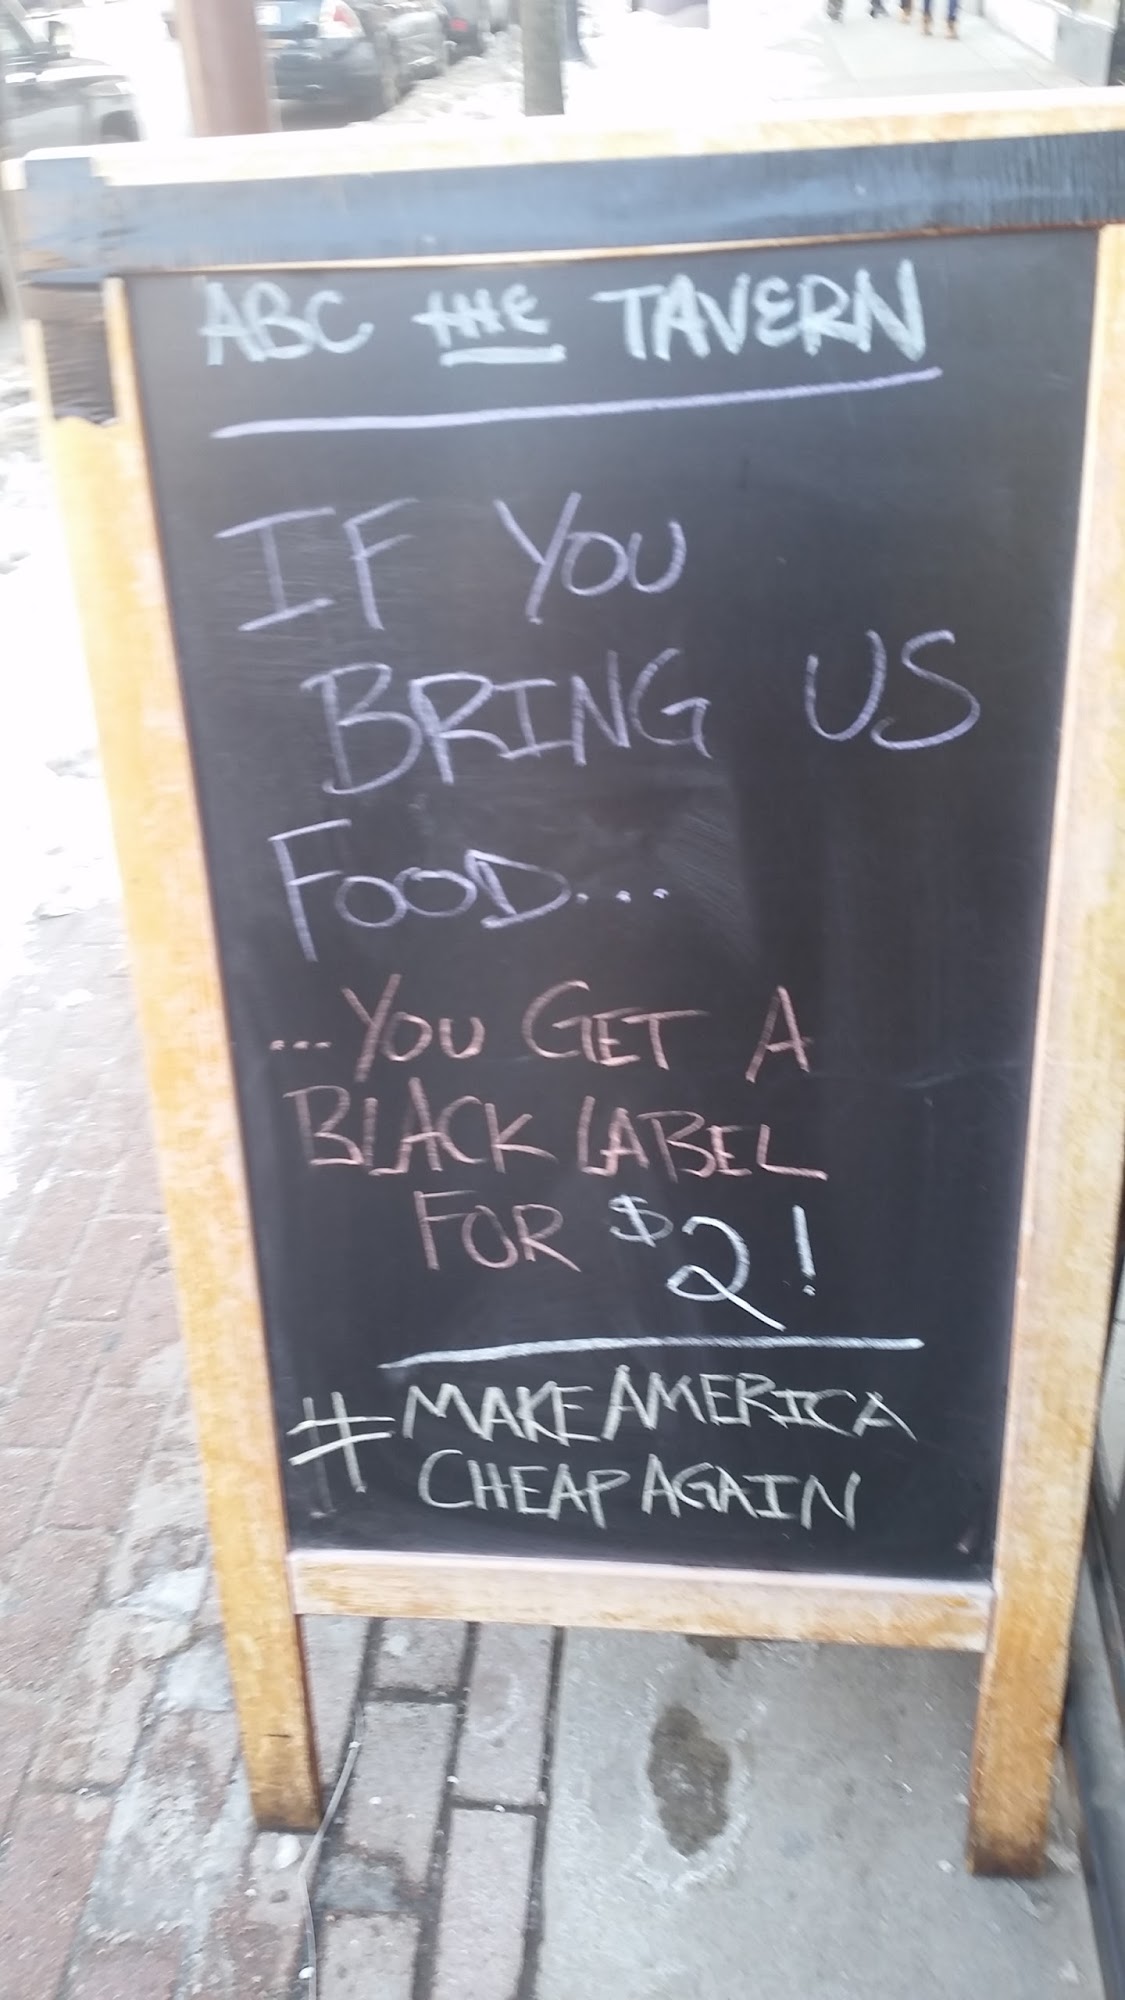 ABC THE TAVERN
IF YOU
BRING US
FOOD...
...YOU GET A
BLACK LABEL
FOR $2!
#MAKEAMERICA
CHEAPAGAIN